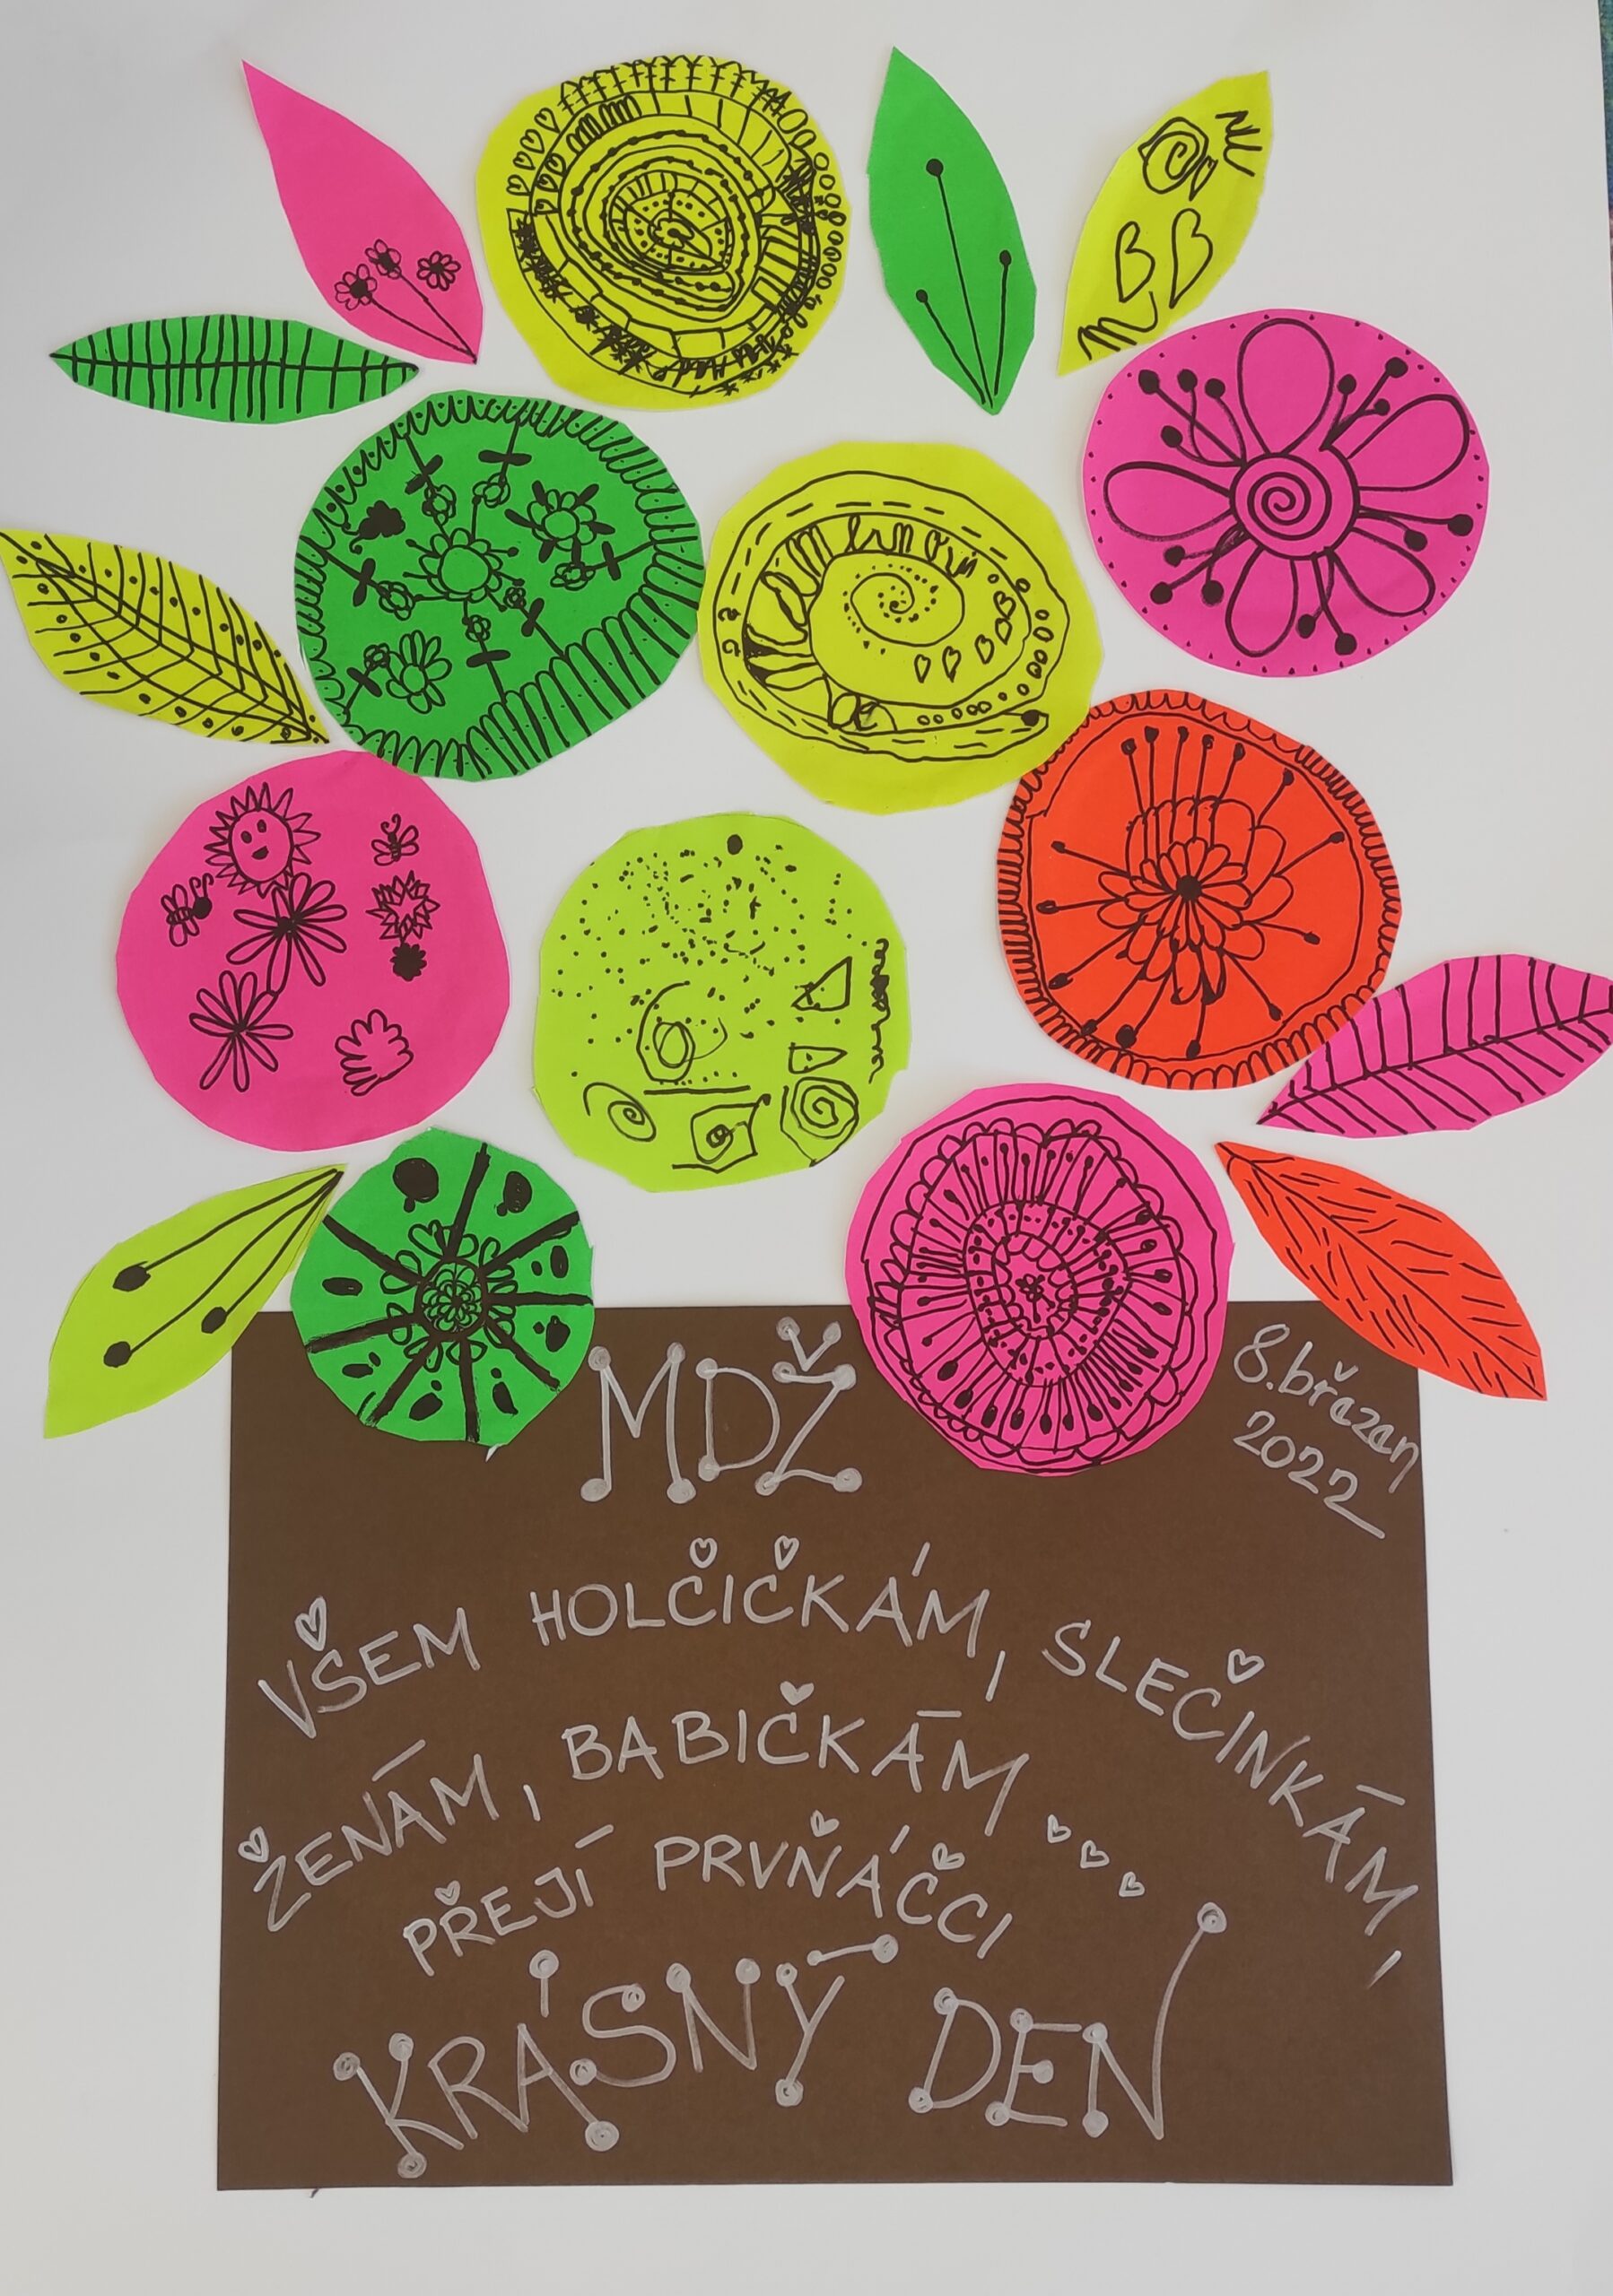 MDŽ
8.březen
2022
VŠEM HOLČIČKÁM, SLEČINKÁM,
ŽENÁM, BABIČKÁM
PŘEJÍ PRVŇÁČCI
KRÁSNÝ DEN